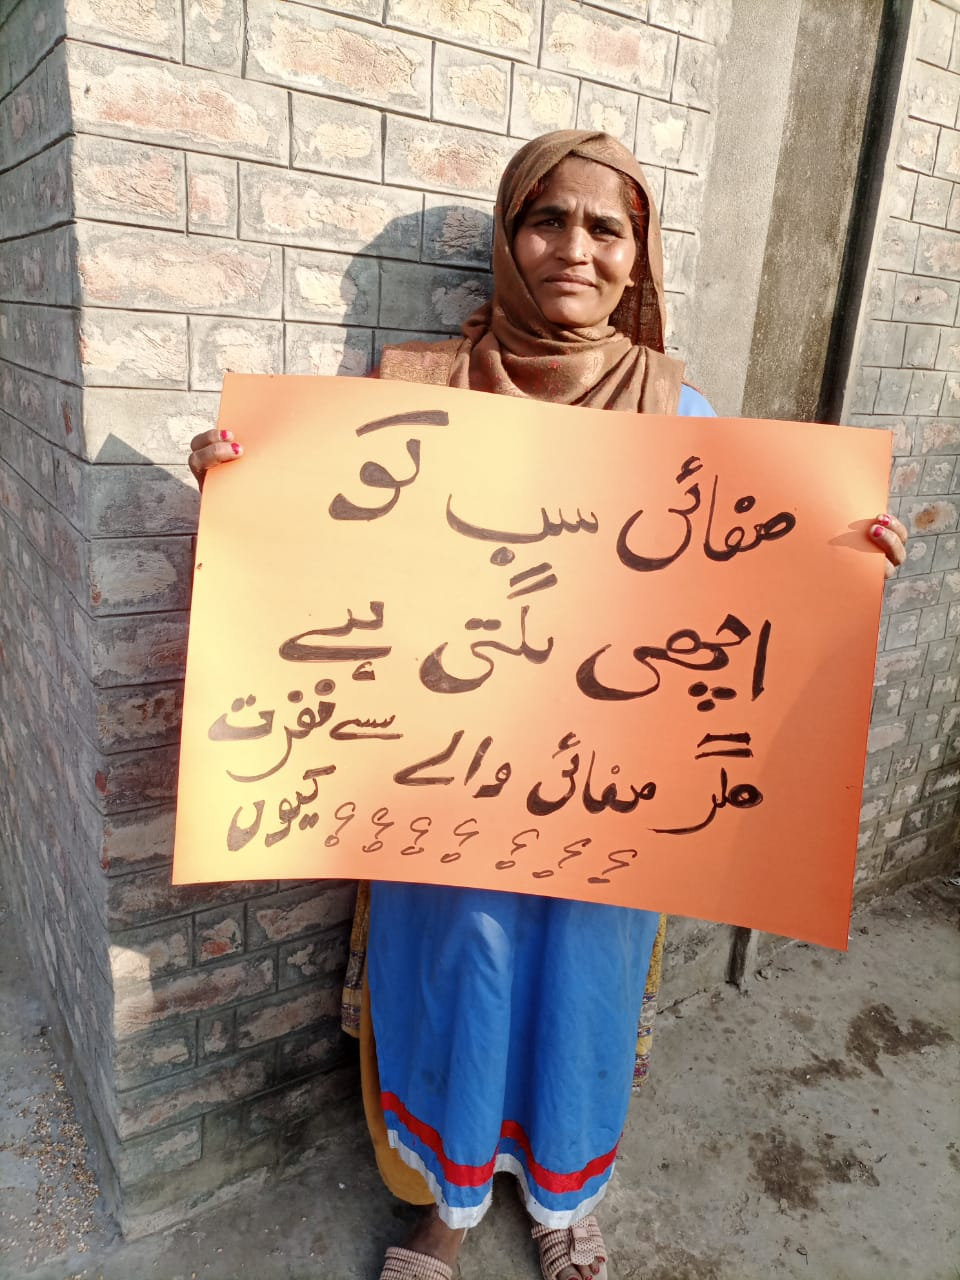 صفائی سب کو
اچھی لگتی ہے
مگر صفائی والے سے نفرت
کیوں ؟ ؟ ؟ ؟ ؟ ؟ ؟